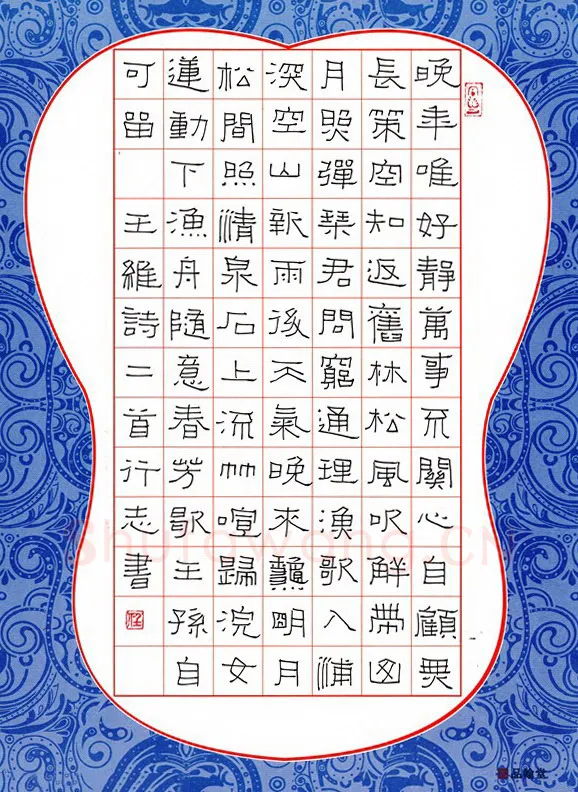 晚年唯好靜萬事不關心自顧無
長策空知返舊林松風吹解帶山
月照彈琴君問窮通理漁歌入浦
深空山新雨後天氣晚來龝明月
松間照清泉石上流竹喧歸浣女
蓮動下漁舟隨意春芳歇王孫自
可留 王維詩二首行志書
品翰堂